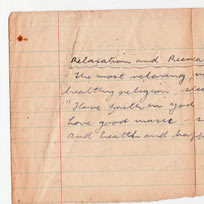 Relaxation and Recrea
The most relaxing,
healthy religion, slee
"Have faith in God
Love good music - s
And health and happ